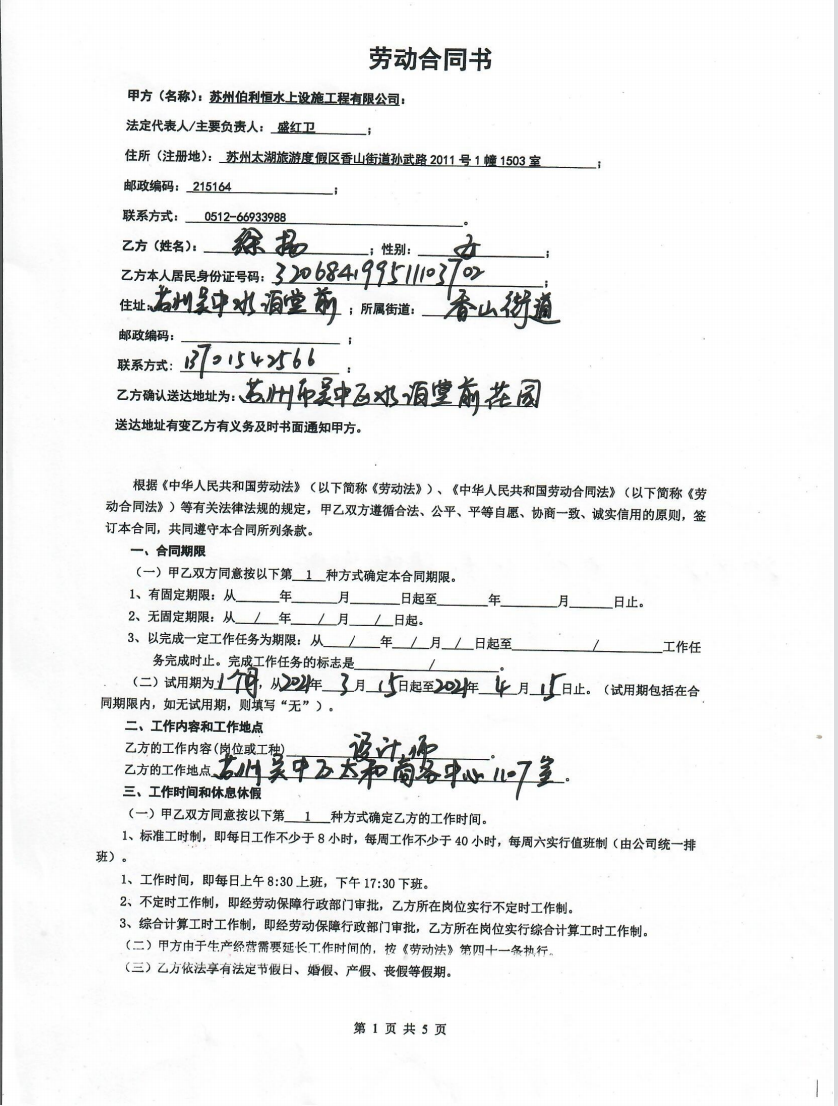 劳动合同书
甲方（名称）：苏州伯利恒水上设施工程有限公司；
法定代表人/主要负责人： 盛红卫 ；
住所（注册地）： 苏州太湖旅游度假区香山街道孙武路2011号1幢1503室 ；
邮政编码： 215164 ；
联系方式： 0512-66933988 。
乙方（姓名）： 徐扬 ；性别： 女 ；
乙方本人居民身份证号码：320684199511103702 ；
住址：苏州吴中水渲堂前 ；所属街道： 香山街道
邮政编码： ；
联系方式：13701542566 ；
乙方确认送达地址为：苏州市吴中区水渲堂前花园
送达地址有变乙方有义务及时书面通知甲方。
根据《中华人民共和国劳动法》（以下简称《劳动法》）、《中华人民共和国劳动合同法》（以下简称《劳
动合同法》）等有关法律法规的规定，甲乙双方遵循合法、公平、平等自愿、协商一致、诚实信用的原则，签
订本合同，共同遵守本合同所列条款。
一、合同期限
（一）甲乙双方同意按以下第 1 种方式确定本合同期限。
1、有固定期限：从 年 月 日起至 年 月 日止。
2、无固定期限：从 / 年 / 月 / 日起。
3、以完成一定工作任务为期限：从 / 年 / 月 / 日起至 / 工作任
务完成时止。完成工作任务的标志是 / 。
（二）试用期为1个月，从2021年 3月 15日起至2021年 4月 15日止。（试用期包括在合
同期限内，如无试用期，则填写“无”）。
二、工作内容和工作地点
乙方的工作内容(岗位或工种) 设计师 。
乙方的工作地点 苏州吴中区太和商务中心1107室 。
三、工作时间和休息休假
（一）甲乙双方同意按以下第 1 种方式确定乙方的工作时间。
1、标准工时制，即每日工作不少于8小时，每周工作不少于40小时，每周六实行值班制（由公司统一排
班）。
1、工作时间，即每日上午8:30上班，下午17:30下班。
2、不定时工作制，即经劳动保障行政部门审批，乙方所在岗位实行不定时工作制。
3、综合计算工时工作制，即经劳动保障行政部门审批，乙方所在岗位实行综合计算工时工作制。
（二）甲方由于生产经营需要延长工作时间的，按《劳动法》第四十一条执行。
（三）乙方依法享有法定节假日、婚假、产假、丧假等假期。
第 1 页 共 5 页